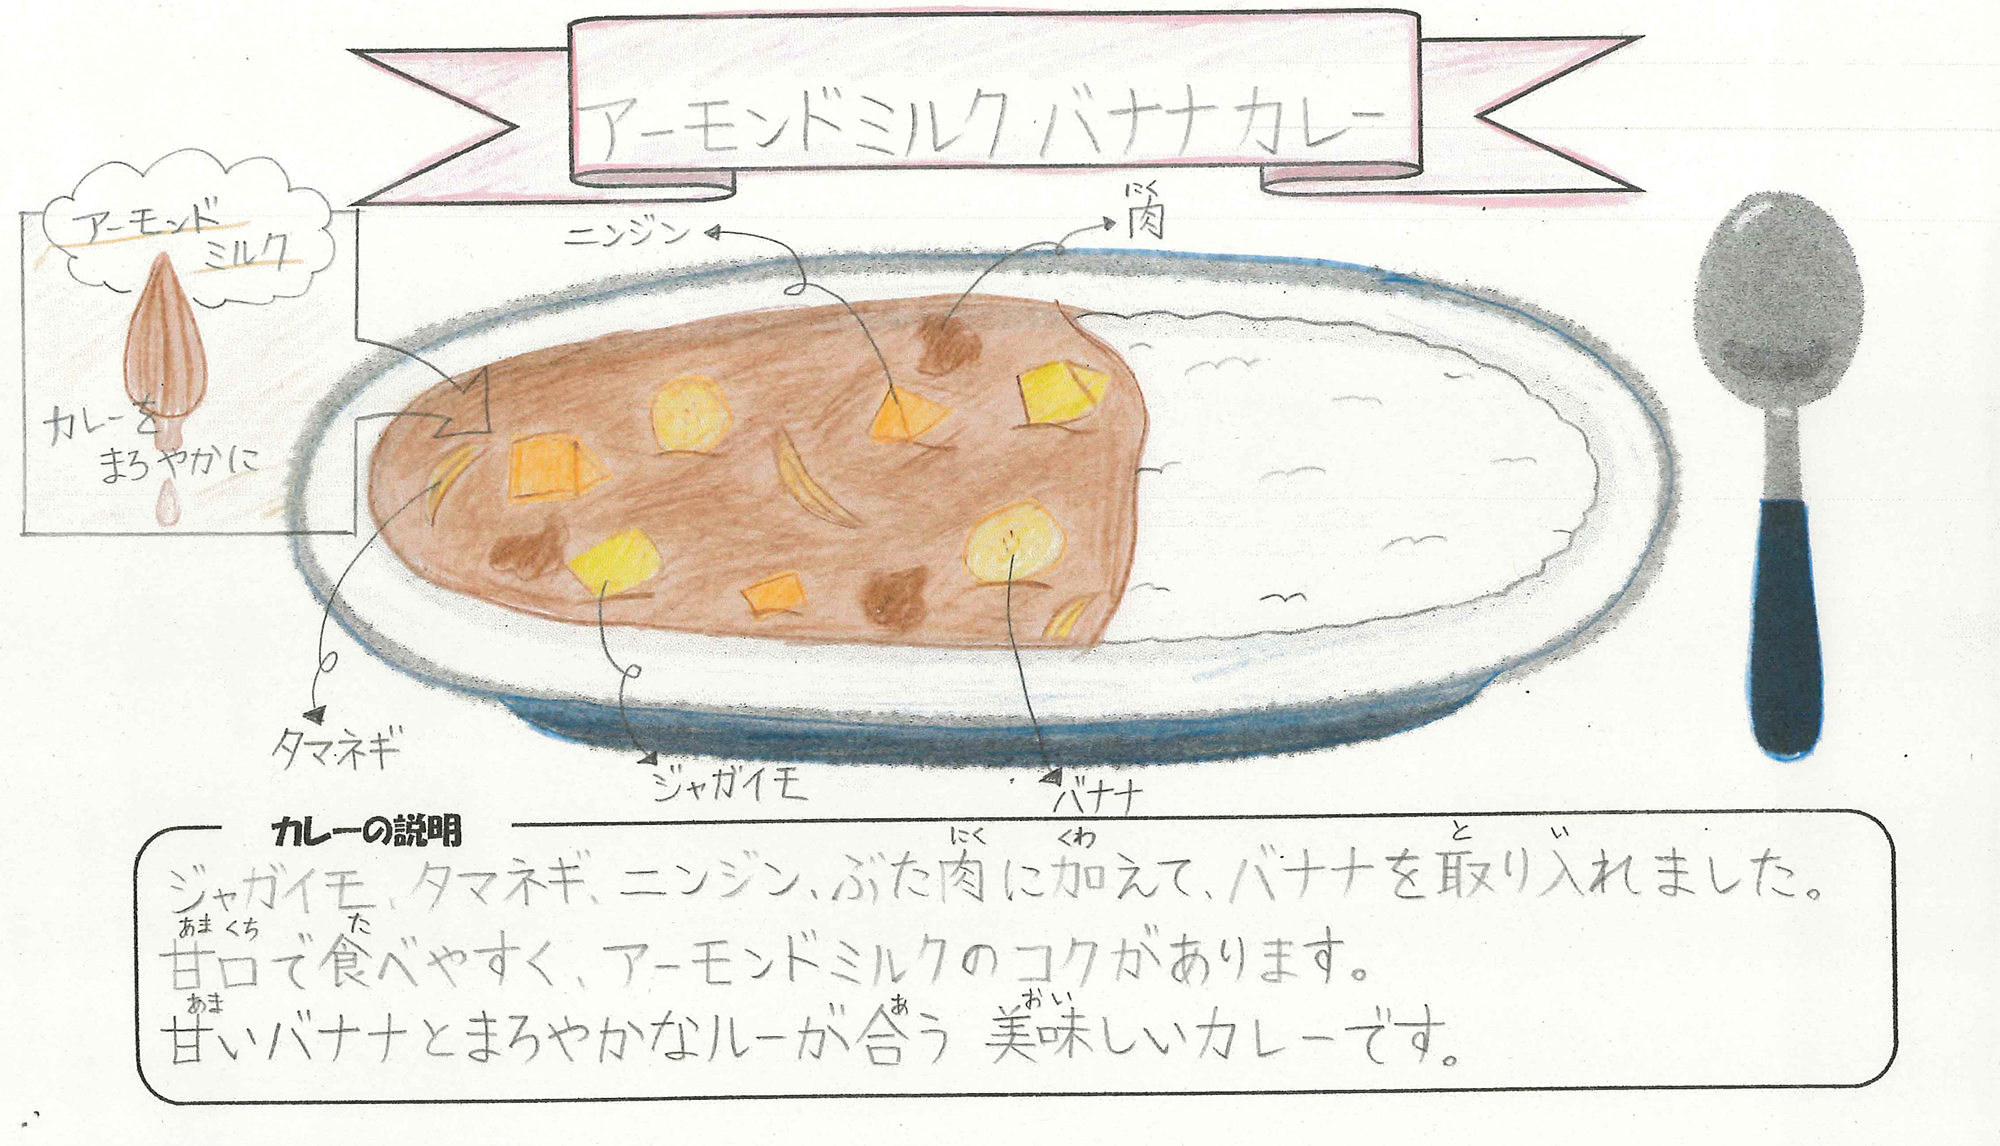 アーモンドミルクバナナカレー
アーモンド
ミルク
カレーを
まろやかに
ニンジン
にく
肉
タマネギ
ジャガイモ
バナナ
カレーの説明
にく くわ と い
ジャガイモ、タマネギ、ニンジン、ぶた肉に加えて、バナナを取り入れました。
あま くち た
甘口で食べやすく、アーモンドミルクのコクがあります。
あま あ おい
甘いバナナとまろやかなルーが合う 美味しいカレーです。